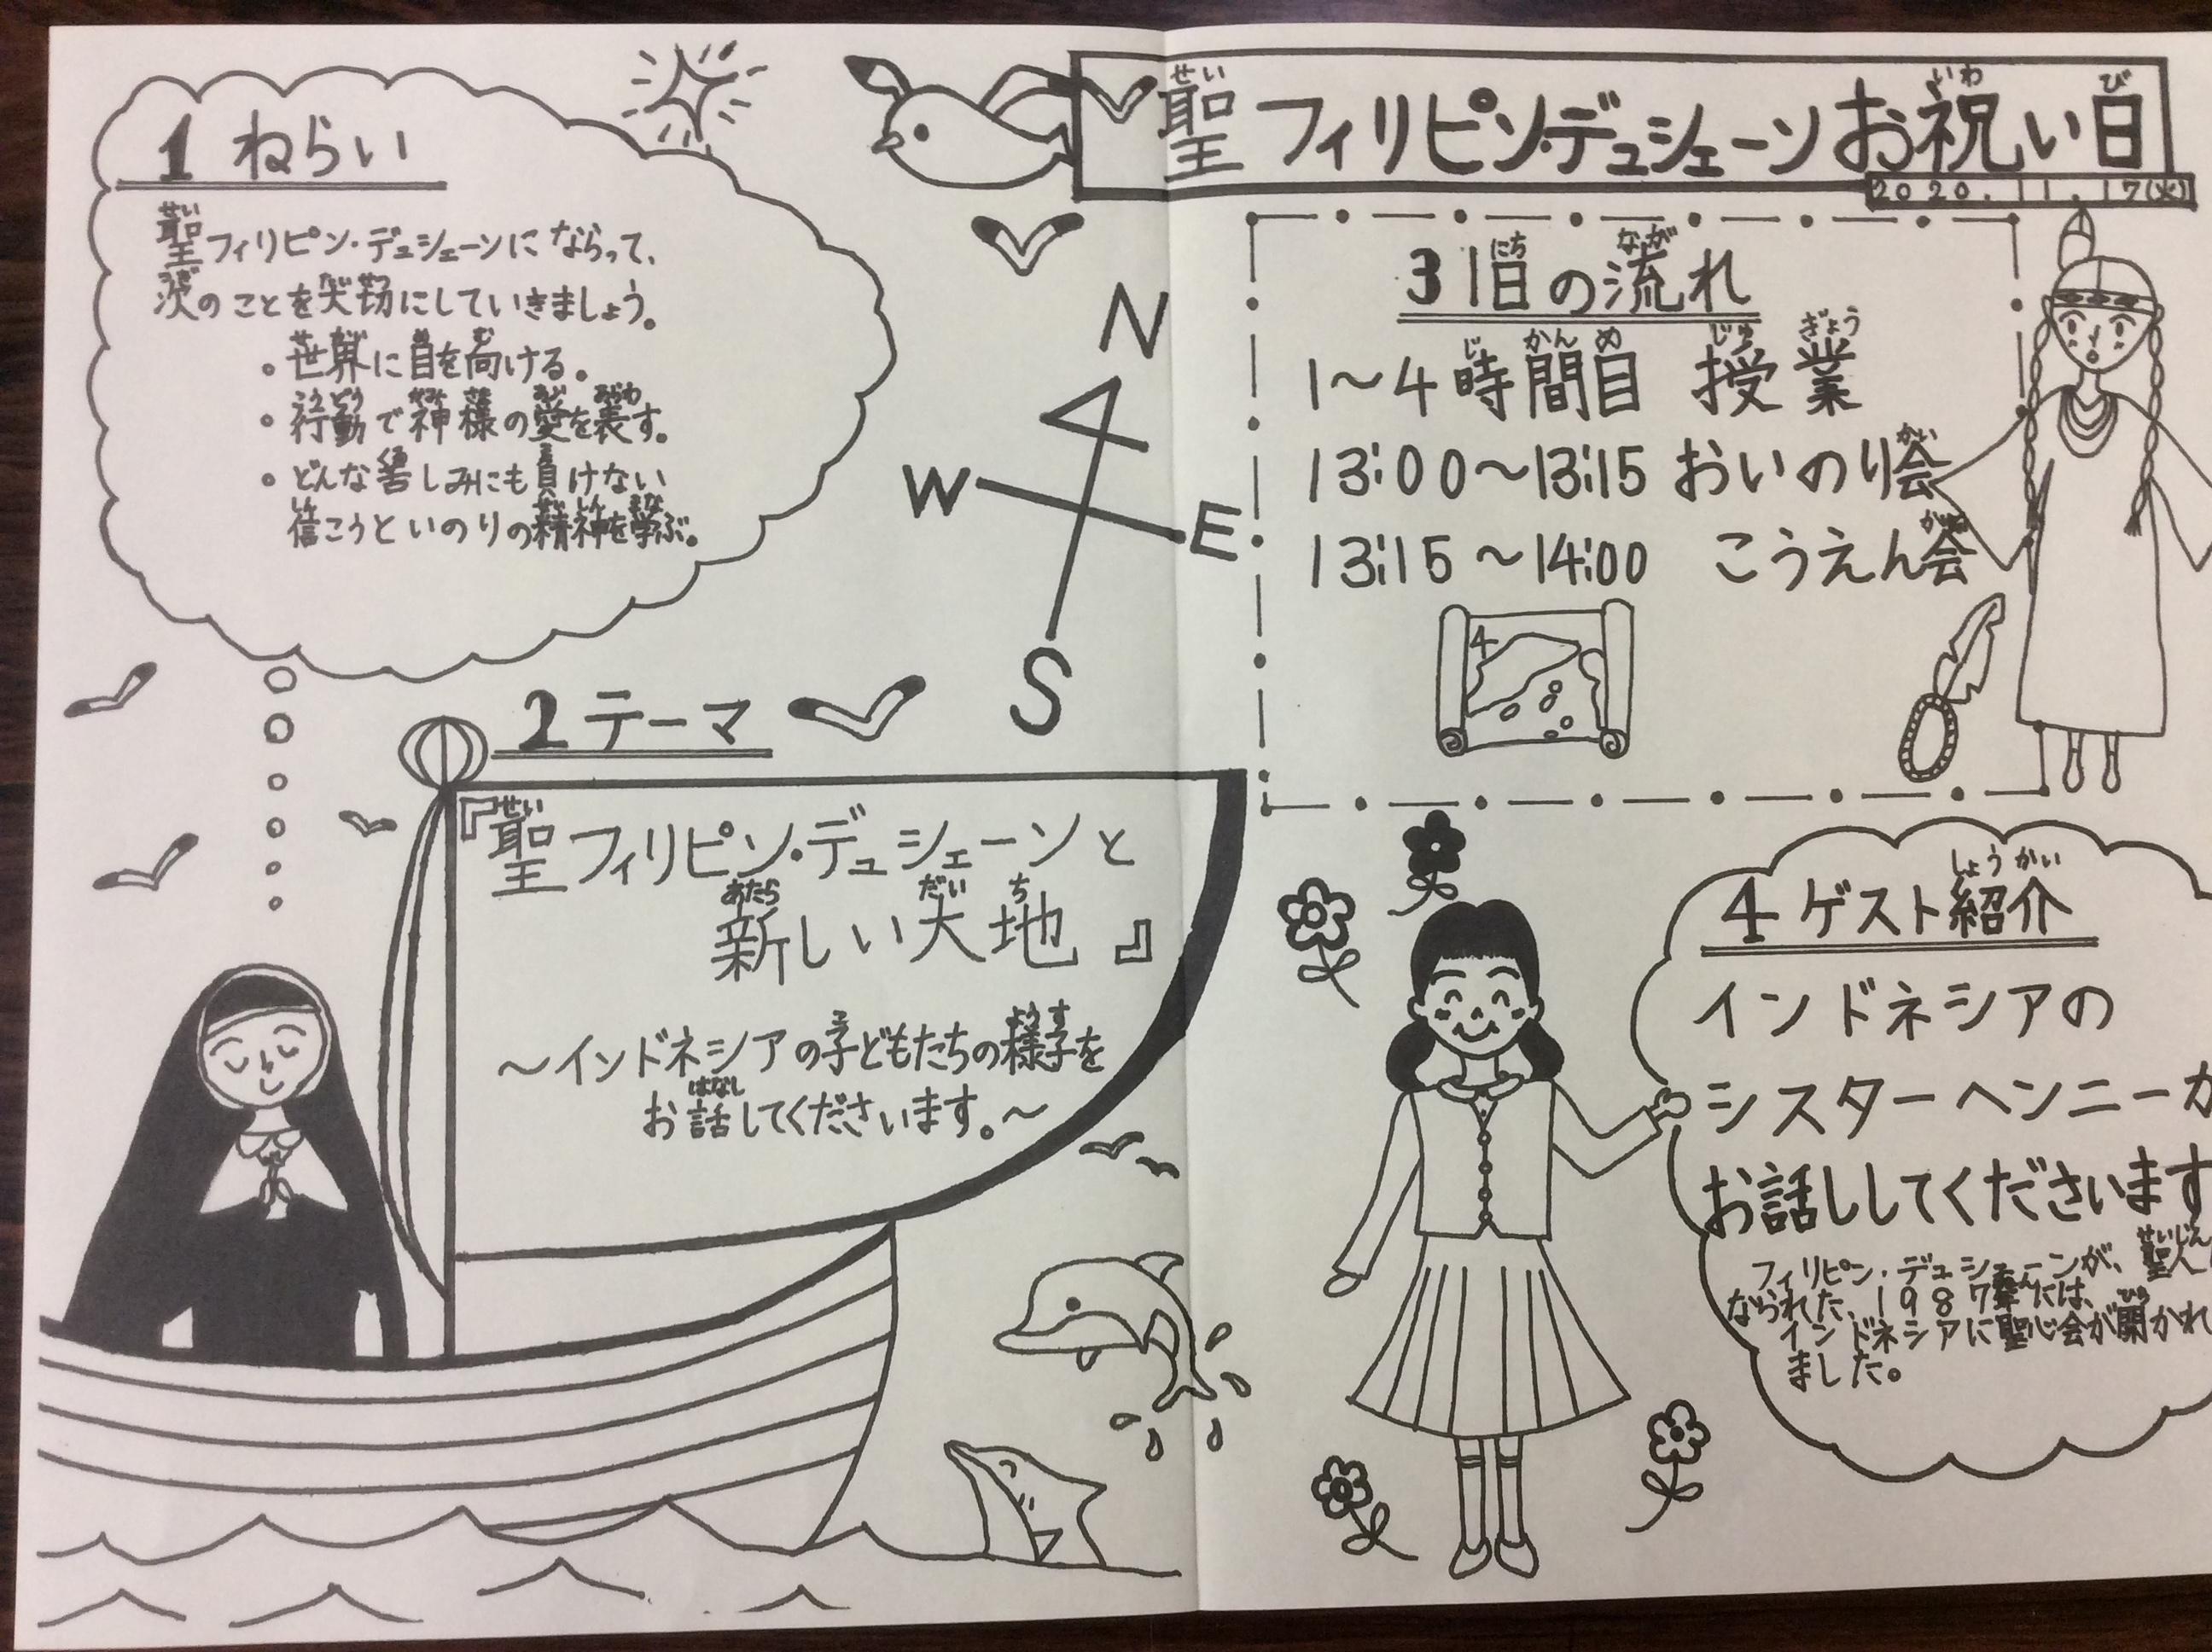 聖フィリピン・デュシェーンお祝い日
2020.11.17(火)
1 ねらい
聖フィリピン・デュシェーンにならって、
次のことを大切にしていきましょう。
・世界に目を向ける。
・行動で神様の愛を表す。
・どんな苦しみにも負けない
信こうといのりの精神を学ぶ。
N
W
E
S
2 テーマ
『聖フィリピン・デュシェーンと
新しい大地』
～インドネシアの子どもたちの様子を
お話してくださいます。～
3 1日の流れ
1～4時間目 授業
13:00～13:15 おいのり会
13:15～14:00 こうえん会
4 ゲスト紹介
インドネシアの
シスターヘンニーが
お話ししてくださいます
フィリピン・デュシェーンが、聖人に
なられた、1987年には、
インドネシアに聖心会が開かれ
ました。